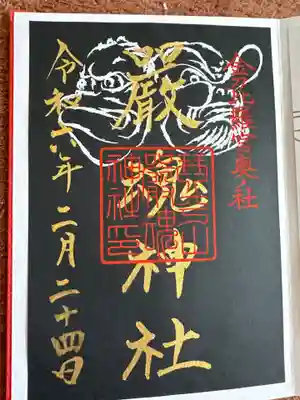 金刀比羅宮奥ノ社
嚴魂神社
令和六年二月二十四日